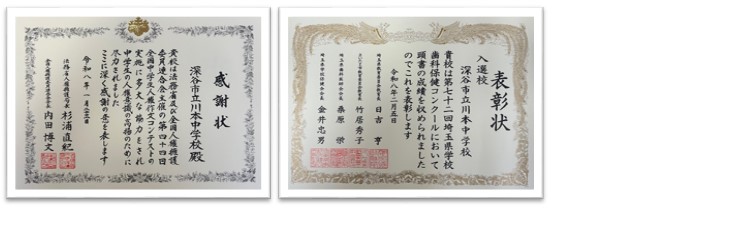 感謝状
深谷市立川本中学校殿
貴校は法務省及び全国人権擁護
委員連合会主催の第四十四回
全国中学生人権作文コンテストの
実施に多大な協力をされ
中学生の人権意識の高揚のために
尽力されました
ここに深く感謝の意を表します
令和八年一月
法務省人権擁護局長 杉浦直紀
全国人権擁護委員連合会会長 内田博文
表彰状
入選校
深谷市立川本中学校
貴校は第七十二回埼玉県学校
歯科保健コンクールにおいて
頭書の成績を収められました
のでこれを表彰します
令和八年二月五日
埼玉県教育委員会教育長 日吉亨
さいたま市教育委員会教育長 竹居秀子
埼玉県歯科医師会会長 桑原栄
金井忠男